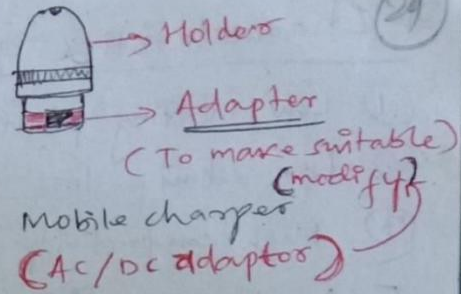 29
Holder
Adapter
(To make suitable)
(modify)
Mobile charger
(AC/DC adaptor)